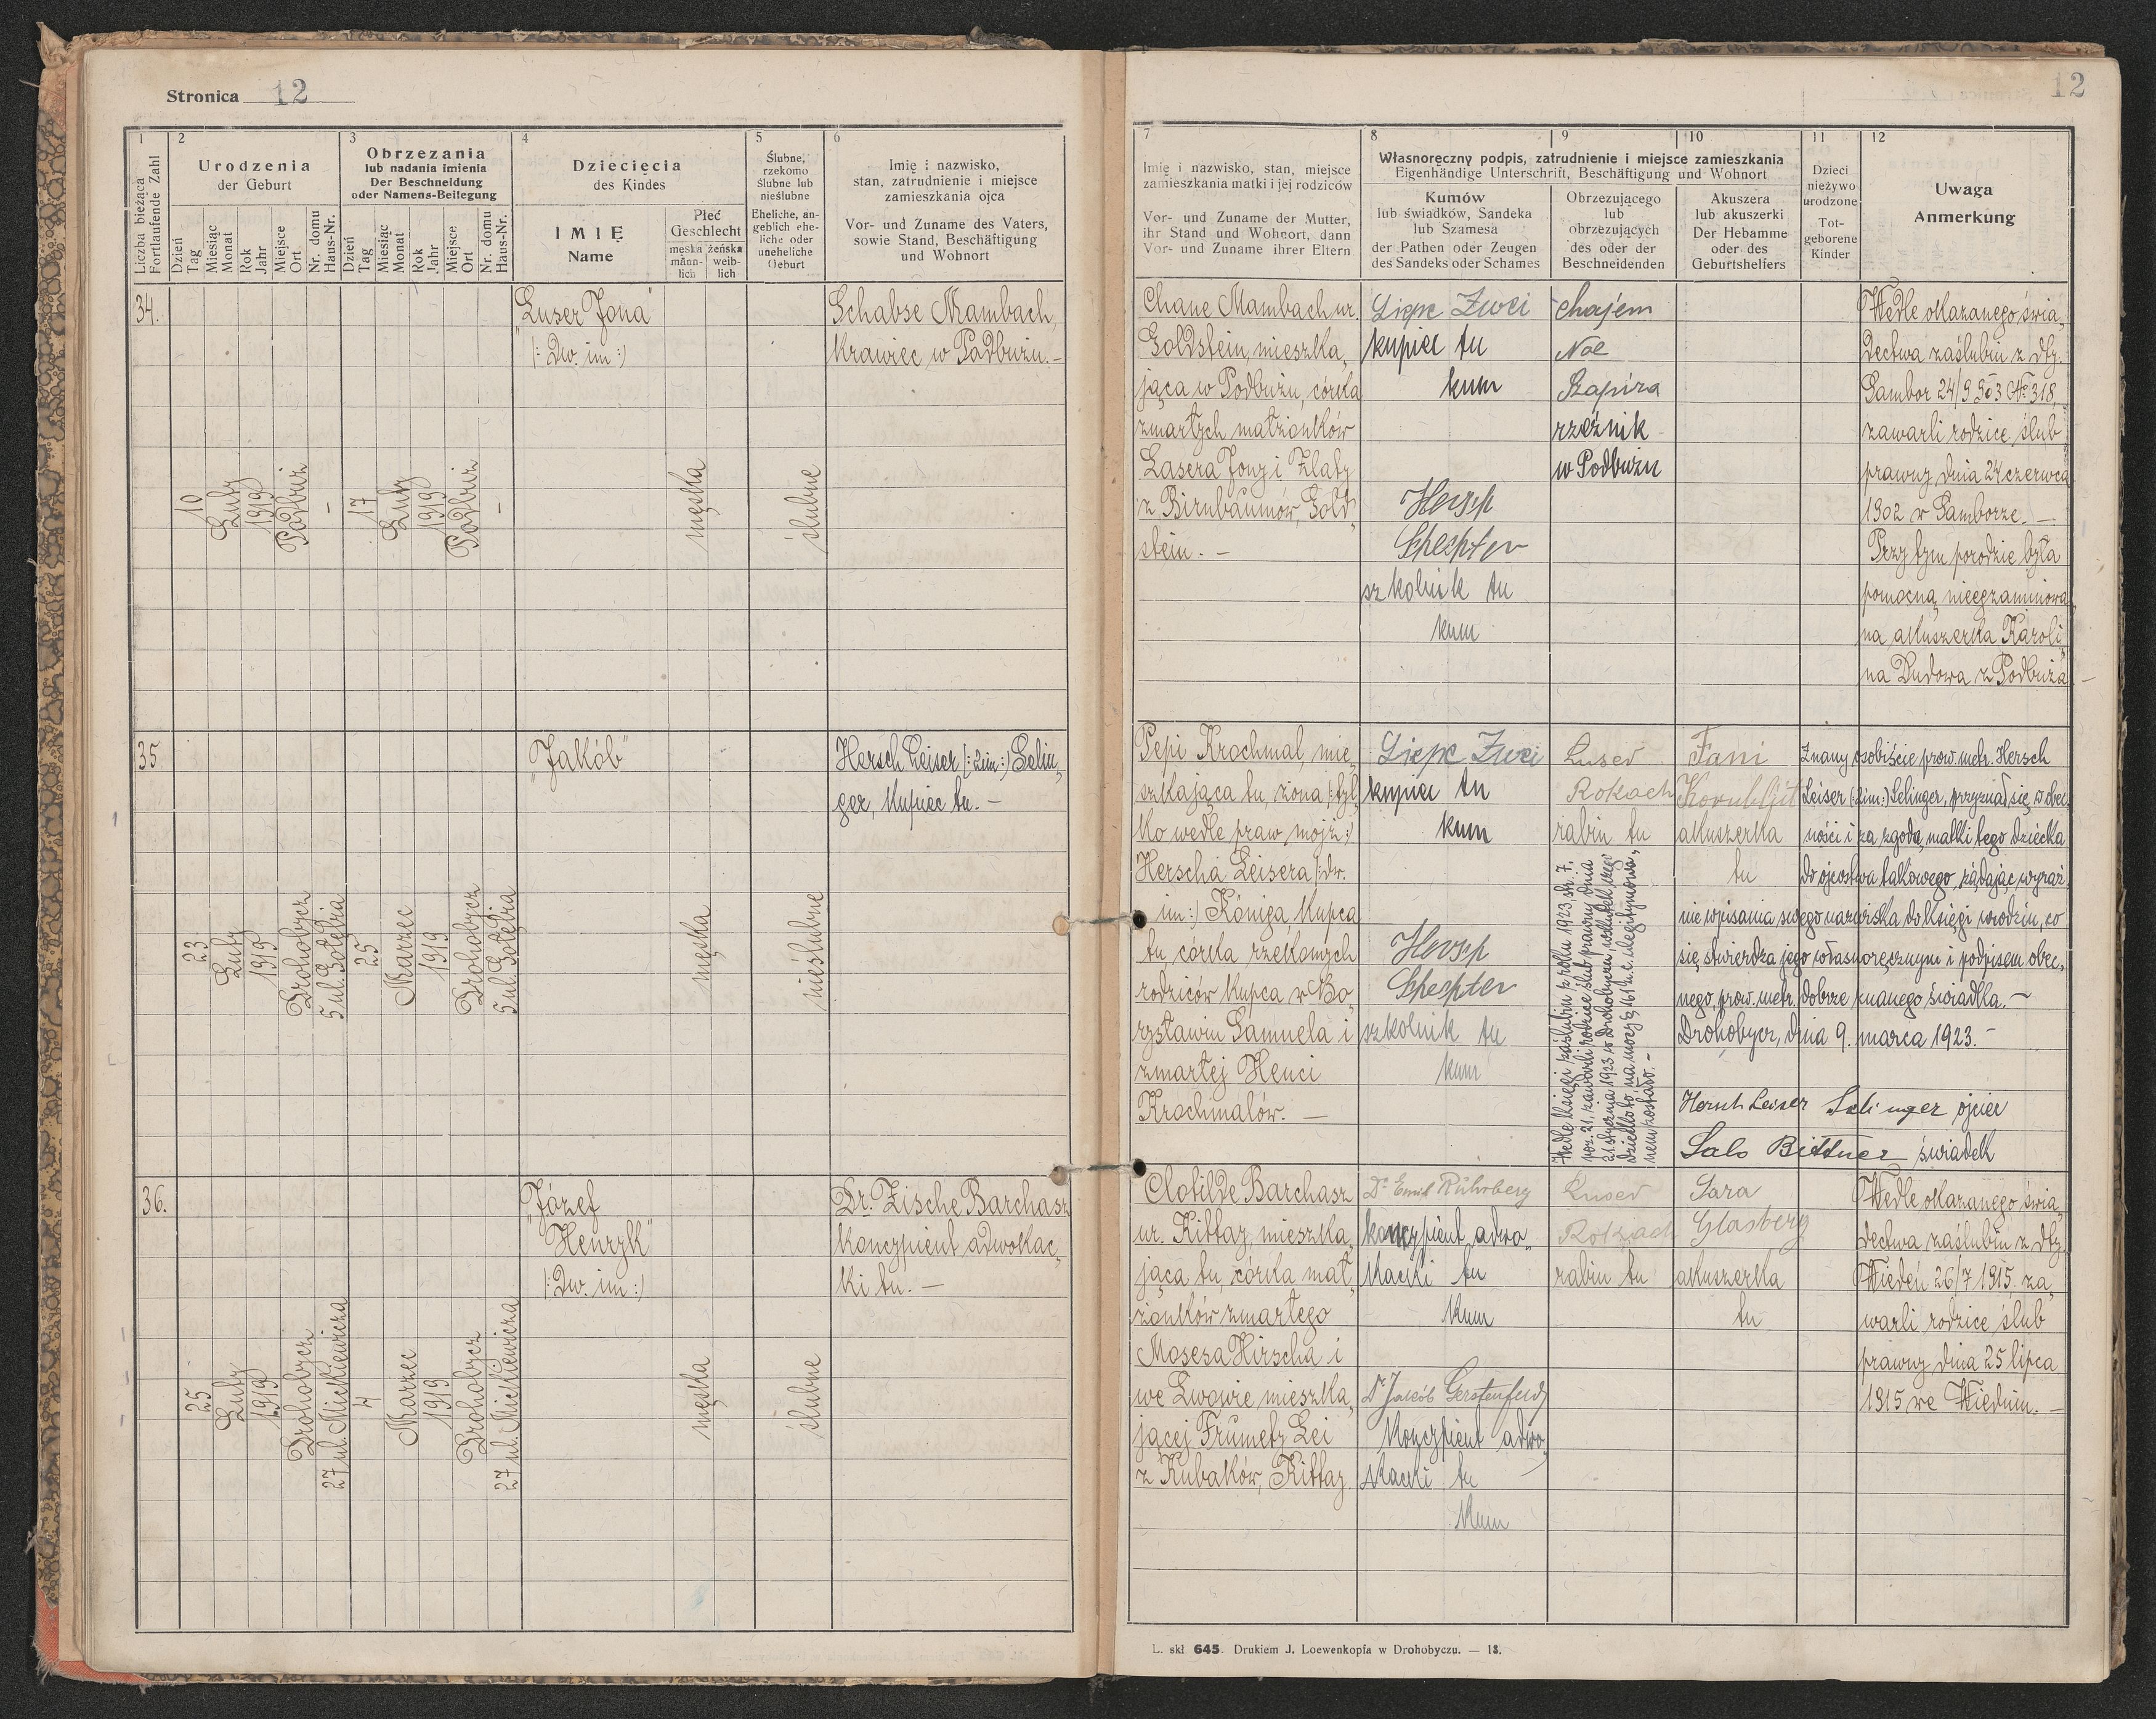 Stronica 12
12
1
Liczba bieżąca
Fortlaufende Zahl
2
Urodzenia
der Geburt
Dzień
Tag
Miesiąc
Monat
Rok
Jahr
Miejsce
Ort
Nr. domu
Haus-Nr.
3
Obrzezania
lub nadania imienia
Der Beschneidung
oder Namens-Beilegung
Dzień
Tag
Miesiąc
Monat
Rok
Jahr
Miejsce
Ort
Nr. domu
Haus-Nr.
4
Dziecięcia
des Kindes
IMIĘ
Name
Płeć
Geschlecht
męska
männ-
lich
żeńska
weib-
lich
5
Ślubne,
rzekomo
ślubne lub
nieślubne
Eheliche, an-
geblich ehe-
liche oder
uneheliche
Geburt
6
Imię i nazwisko,
stan, zatrudnienie i miejsce
zamieszkania ojca
Vor- und Zuname des Vaters,
sowie Stand, Beschäftigung
und Wohnort
7
Imię i nazwisko, stan, miejsce
zamieszkania matki i jej rodziców
Vor- und Zuname der Mutter,
ihr Stand und Wohnort, dann
Vor- und Zuname ihrer Eltern
8
9
10
Własnoręczny podpis, zatrudnienie i miejsce zamieszkania
Eigenhändige Unterschrift, Beschäftigung und Wohnort
Kumów
lub świadków, Sandeka
lub Szamesa
der Pathen oder Zeugen
des Sandeks oder Schames
Obrzezującego
lub
obrzezujących
des oder der
Beschneidenden
Akuszera
lub akuszerki
Der Hebamme
oder des
Geburtshelfers
11
Dzieci
nieżywo
urodzone
Tot-
geborene
Kinder
12
Uwaga
Anmerkung
34.
10
Luty
1919
Podbuż
-
17
Luty
1919
Podbuż
-
"Luser Jona"
(: Dw. im :)
męska
ślubne
Schabse Mambach,
krawiec w Podbużu. -
Chane Mambach ur.
Goldstein, mieszka„
jąca w Podbużu, córka
zmarłych małżonków
Lasera Jony i Zlaty
z Birnbaumów, Gold„
stein. -
Lippe Zwei
kupiec tu
kum
Hersch
Schechter
szkolnik tu
kum
Chajem
Noe
Szapira
rzeźnik
w Podbużu
Wedle okazanego świa„
dectwa zaślubin z dty.
Sambor 24/9 903 No 318,
zawarli rodzice ślub
prawny dnia 24 czerwca
1902 w Samborze. -
Przy tym porodzie była
pomocną nieegzaminowa„
na akuszerka Karoli„
na Dudowa z Podbuża -
35
23
Luty
1919
Drohobycz
5 ul. Gołębia
25
Marzec
1919
Drohobycz
5 ul. Gołębia
"Jakób"
męska
nieślubne
Hersch Leiser (: 2im :) Selin„
ger, kupiec tu. -
Pepi Krochmal, mie„
szkająca tu, żona (: tyl„
ko wedle praw mojż :)
Herscha Leisera (: dw.
im :) Königa, kupca
tu, córka rzekomych
rodziców kupca w Bo„
rysławiu Samuela i
zmarłej Henci
Krochmalów. -
Lippe Zwei
kupiec tu
kum
Hersch
Schechter
szkolnik tu
kum
Luser
Rokach
rabin tu
Wedle księgi zaślubin z roku 1923, str. 7,
poz. 21, zawarli rodzice ślub prawny dnia
21 stycznia 1923 w Drohobyczu, wskutek czego
dziecko to, na mocy § 161 u.c. legitymowa„
nem zostało. -
Fani
Kornblüt
akuszerka
tu
Znany osobiście prow. metr. Hersch
Leiser (: 2im :) Selinger, przyznał się w obec„
ności i za zgodą matki tego dziecka
do ojcostwa takowego, żądając wyraź„
nie wpisania swego nazwiska do księgi urodzin, co
się stwierdza jego własnoręcznym i podpisem obec„
nego, prow. metr. dobrze znanego świadka. -
Drohobycz, dnia 9. marca 1923. -
Hersch Leiser Selinger ojciec
Salo Bittner świadek
36.
25
Luty
1919
Drohobycz
27 ul. Mickiewicza
4
Marzec
1919
Drohobycz
27 ul. Mickiewicza
"Józef
Henryk"
(: Dw. im :)
męska
ślubne
Dr. Zische Barchasz
koncypient adwokac„
ki tu. -
Clotilde Barchasz
ur. Kittay, mieszka„
jąca tu, córka mał„
żonków zmarłego
Mosesa Hirscha i
we Lwowie mieszka„
jącej Frumety Lei
z Kubaków, Kittay.
Dr Emil Rührberg
koncypient adwo„
kacki tu
kum
Dr Jakób Gerstenfeld
koncypient adwo„
kacki tu
kum
Luser
Rokach
rabin tu
Sara
Glasberg
akuszerka
tu
Wedle okazanego świa„
dectwa zaślubin z dty.
Wiedeń 26/7 1915 za„
warli rodzice ślub
prawny dnia 25 lipca
1915 we Wiedniu. -
L. skł 645. Drukiem J. Loewenkopfa w Drohobyczu. — 18.